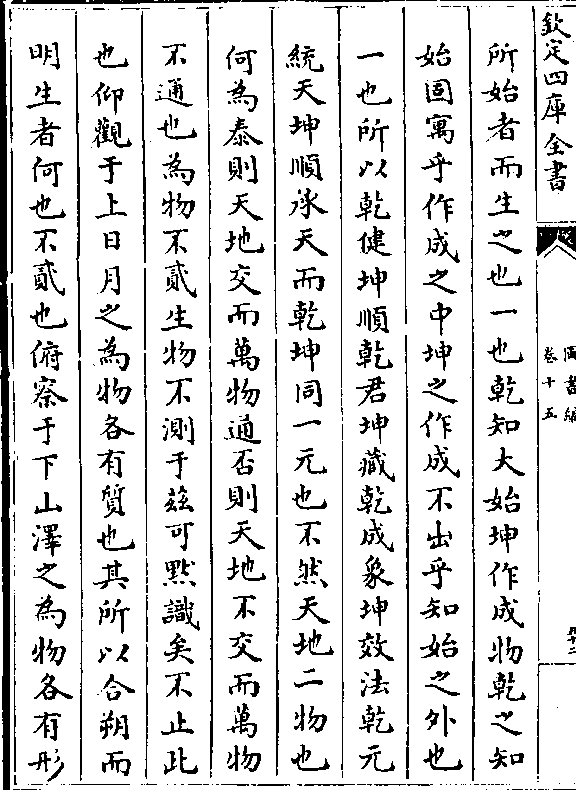 欽定四庫全書
圖書編
卷十五
所始者而生之也一也乾知大始坤作成物乾之知
始固寓乎作成之中坤之作成不出乎知始之外也
一也所以乾健坤順乾君坤藏乾成象坤效法乾元
統天坤順承天而乾坤同一元也不然天地二物也
何為泰則天地交而萬物通否則天地不交而萬物
不通也為物不貳生物不測于茲可黙識矣不止此
也仰觀于上日月之為物各有質也其所以合朔而
明生者何也不貳也俯察于下山澤之為物各有形